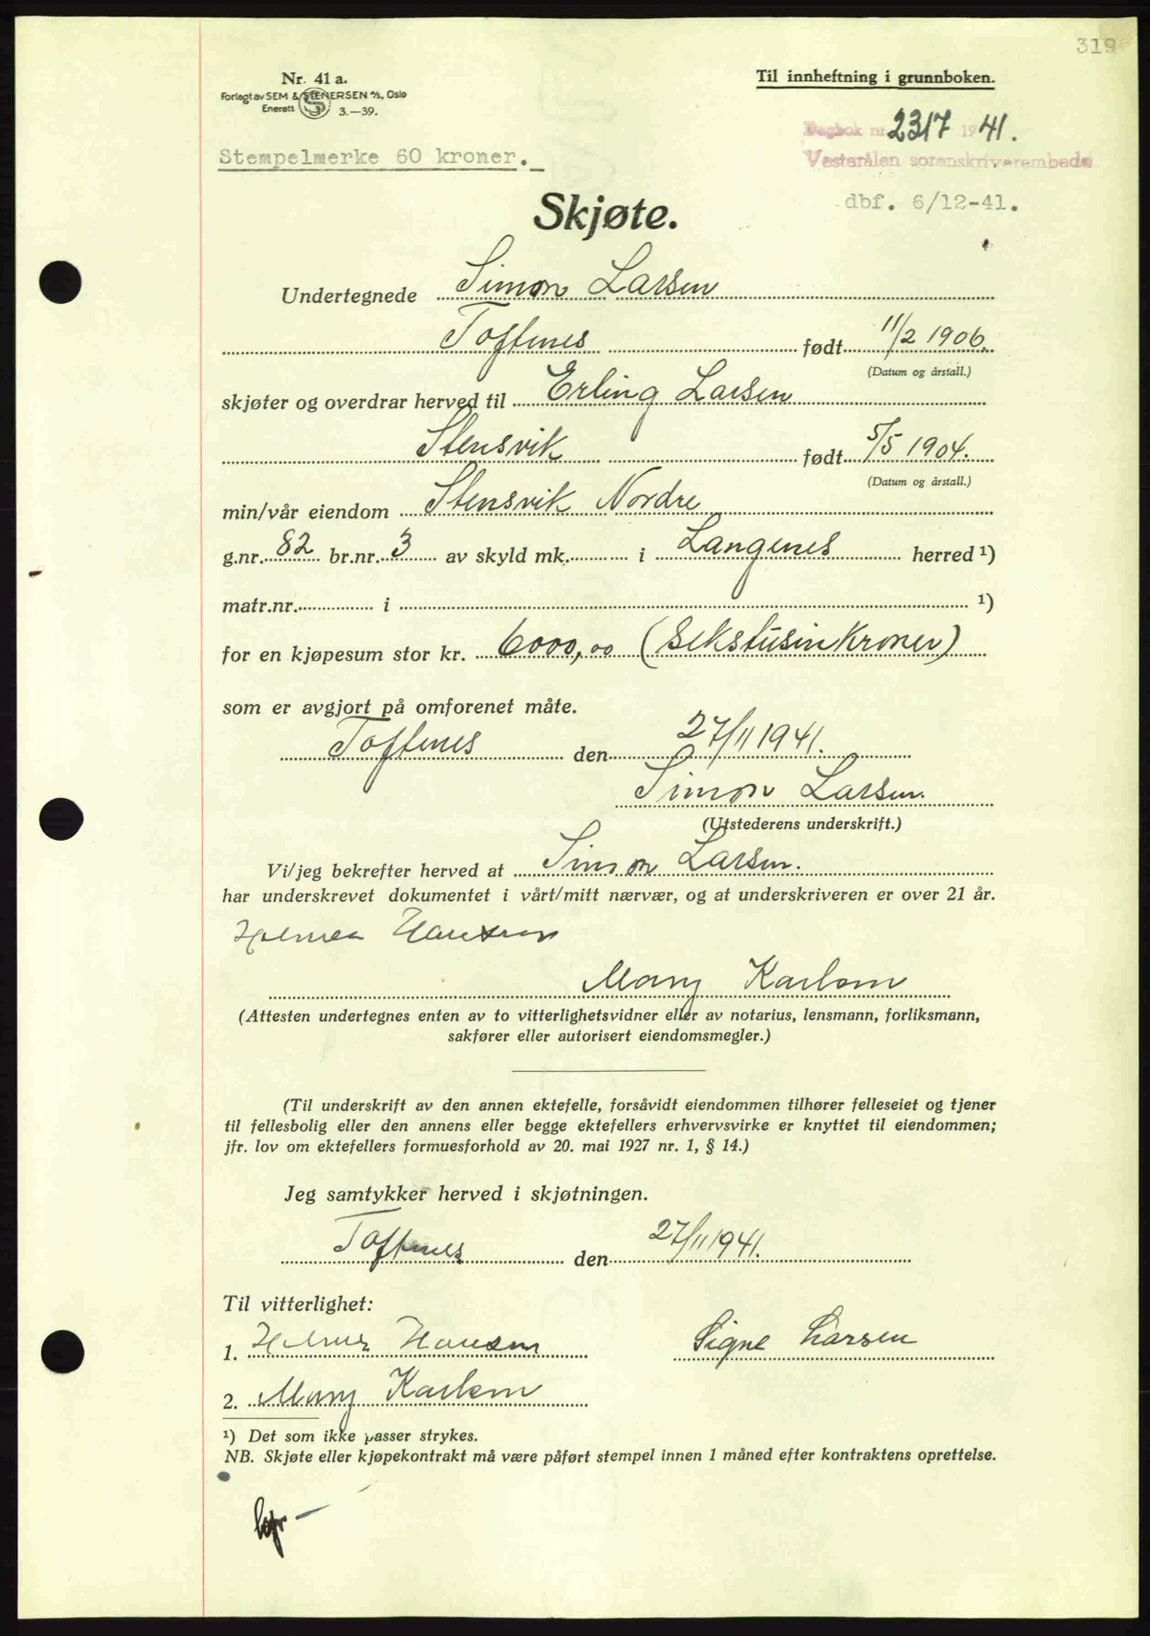 319
Nr. 41 a.
Forlagt av SEM & STENERSEN A/S, Oslo
Enerett S 3.—39.
Til innheftning i grunnboken.
Dagbok nr. 2317 1941.
Vesterålen sorenskriverembede
Stempelmerke 60 kroner.
dbf. 6/12-41.
Skjøte.
Undertegnede Simon Larsen
Toftenes født 11/2 1906.
(Datum og årstall.)
skjøter og overdrar herved til Erling Larsen
Stensvik født 5/5 1904.
(Datum og årstall.)
min/vår eiendom Stensvik Nordre
g.nr. 82 br.nr. 3 av skyld mk. i Langenes herred ¹)
matr.nr. i ¹)
for en kjøpesum stor kr. 6000,00 (sekstusinkroner)
som er avgjort på omforenet måte.
Toftenes den 27/11 1941.
Simon Larsen.
(Utstederens underskrift.)
Vi/jeg bekrefter herved at Simon Larsen.
har underskrevet dokumentet i vårt/mitt nærvær, og at underskriveren er over 21 år.
Hansen
Mary Karlsen
(Attesten undertegnes enten av to vitterlighetsvidner eller av notarius, lensmann, forliksmann,
sakfører eller autorisert eiendomsmegler.)
(Til underskrift av den annen ektefelle, forsåvidt eiendommen tilhører felleseiet og tjener
til fellesbolig eller den annens eller begge ektefellers erhvervsvirke er knyttet til eiendommen;
jfr. lov om ektefellers formuesforhold av 20. mai 1927 nr. 1, § 14.)
Jeg samtykker herved i skjøtningen.
Toftenes den 27/11 1941.
Til vitterlighet:
1. Hansen Signe Larsen
2. Mary Karlsen
¹) Det som ikke passer strykes.
NB. Skjøte eller kjøpekontrakt må være påført stempel innen 1 måned efter kontraktens oprettelse.